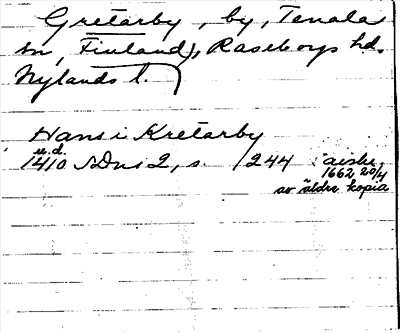 Gretarby, by, Tenala
sn, Finland, Raseborgs hd.
Nylands l.
Hans i Kretarby
u.d.
1410 SDns 2, s. 244 avskr.
1662 20/4
av äldre kopia